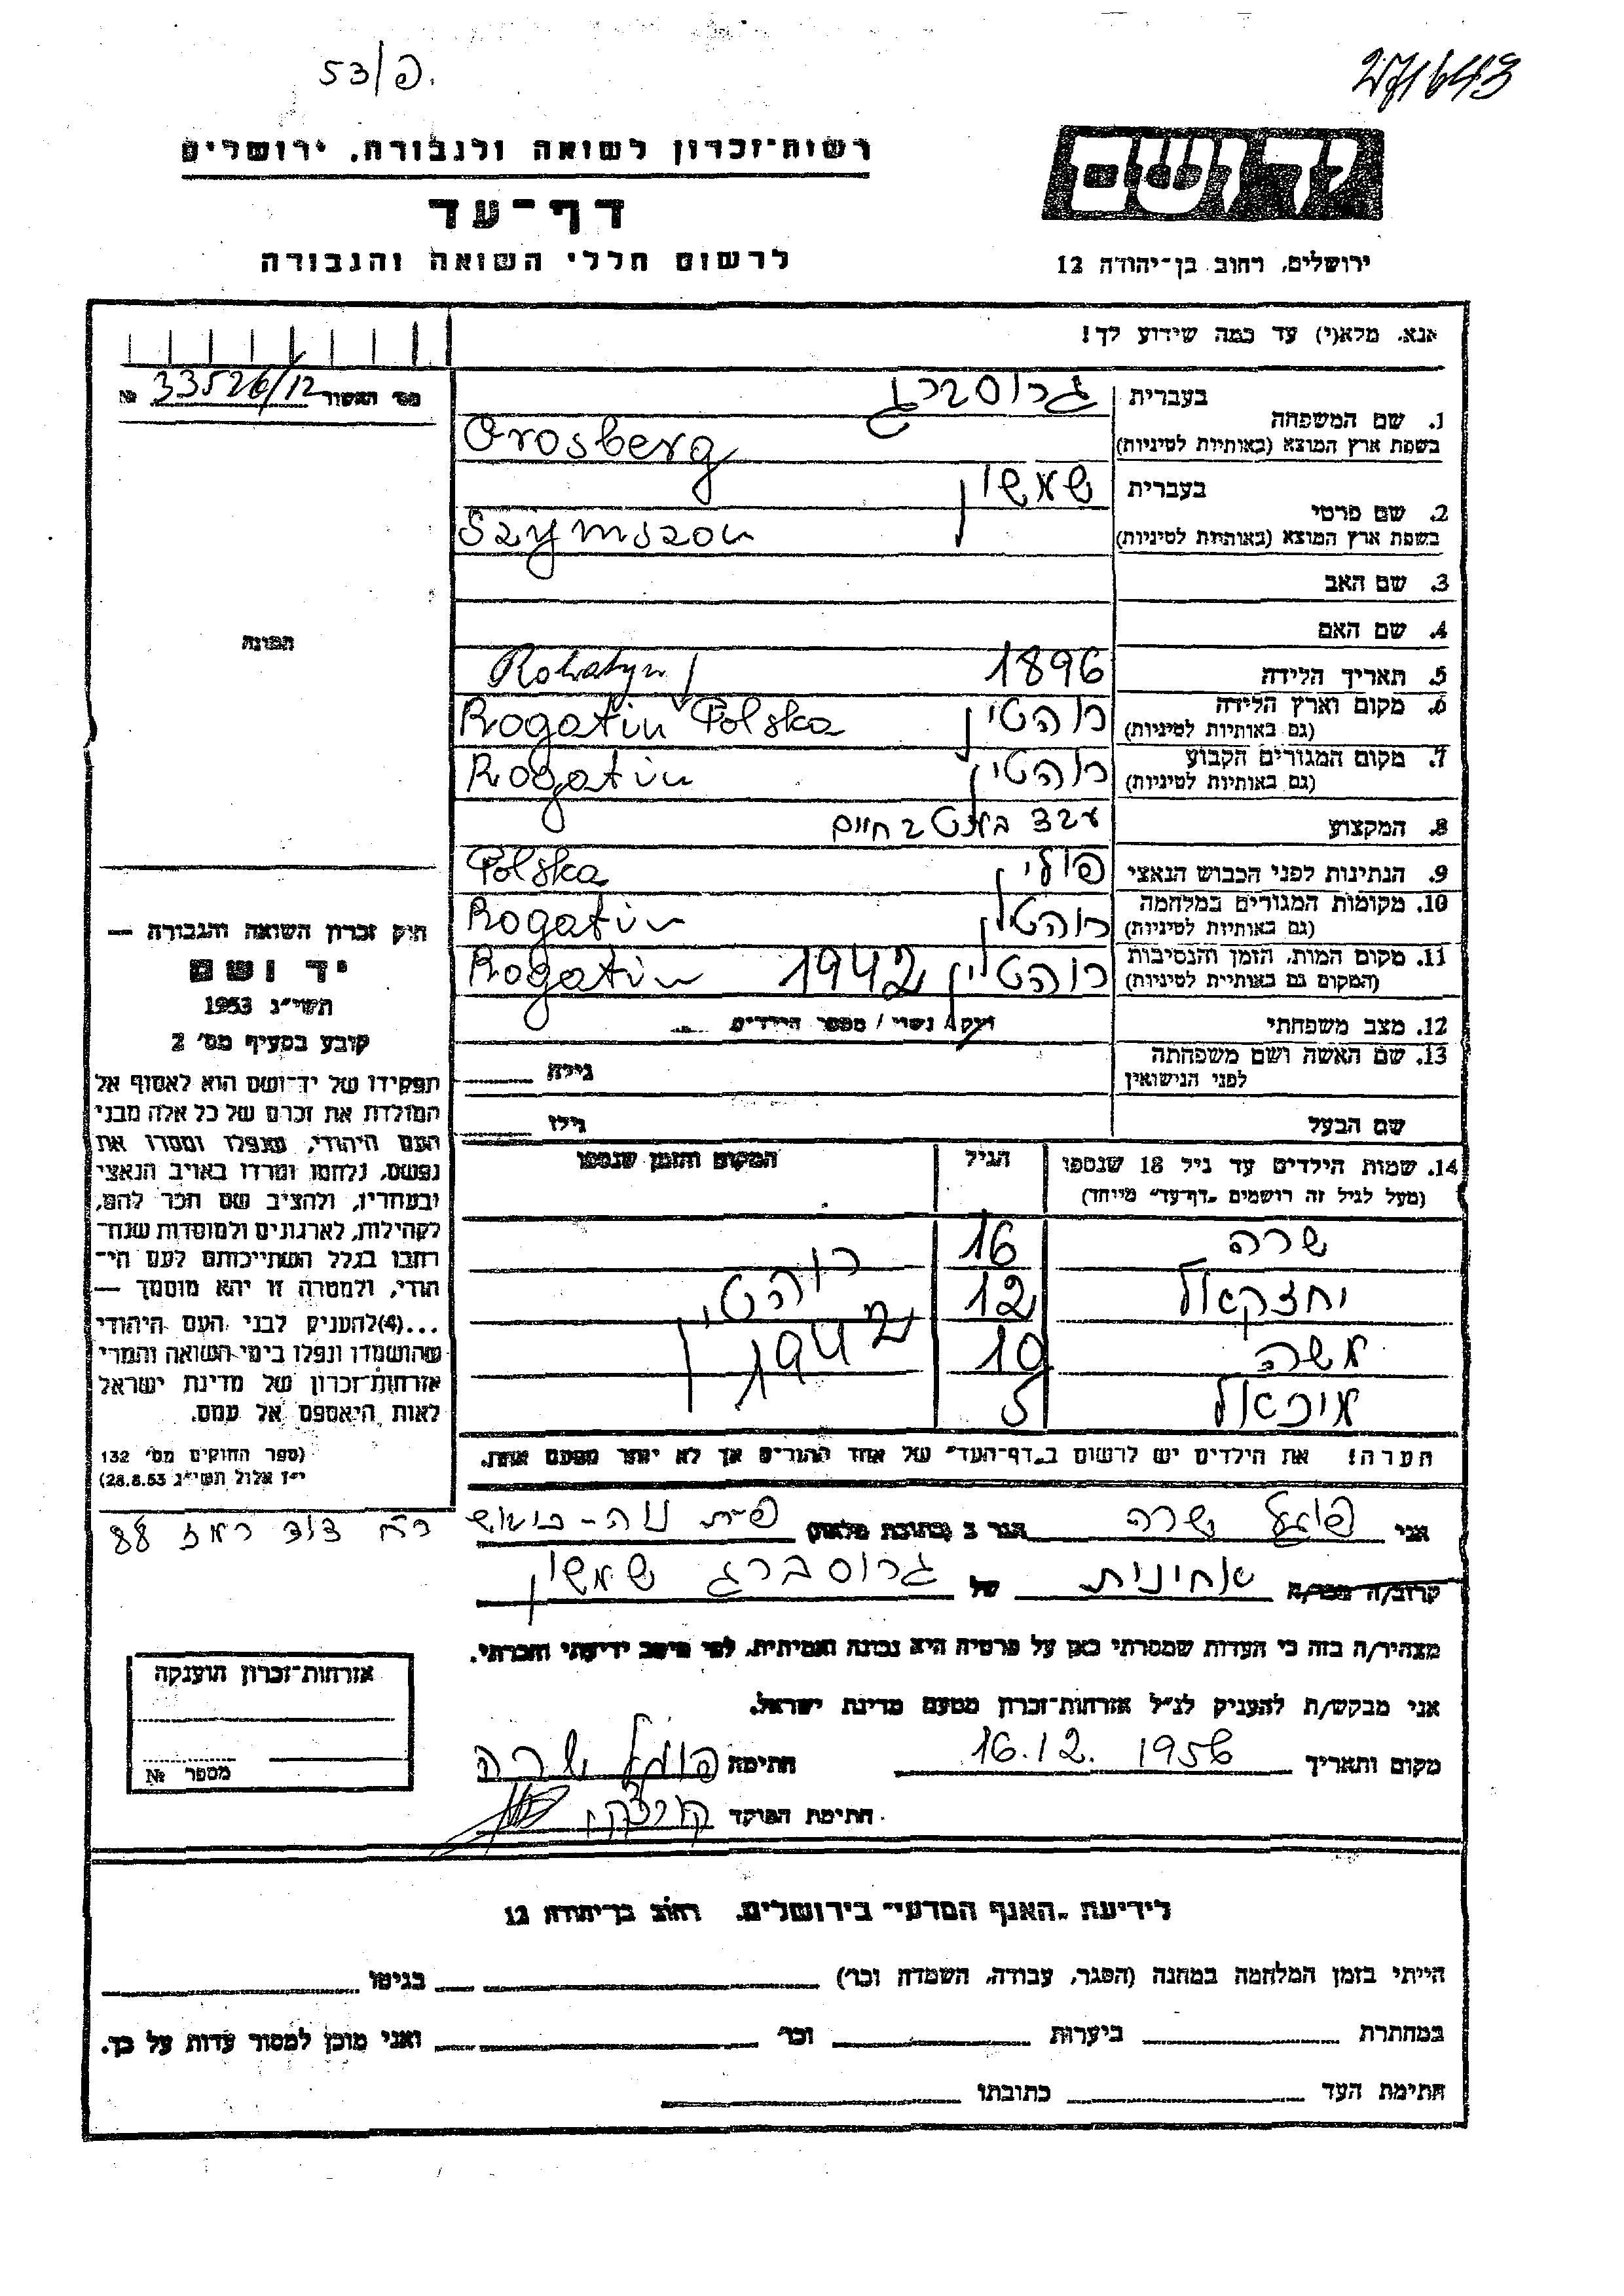 53/פ.
271643
רשות־זכרון לשואה ולגבורה, ירושלים
דף־עד
לרשום חללי השואה והגבורה
ידושם
ירושלים, רחוב בן־יהודה 12
אנא, מלא(י) עד כמה שידוע לך!
מס׳ האשור 33526/12 №
1. שם המשפחה
בעברית גרוסברג
בשפת ארץ המוצא (באותיות לטיניות) Grosberg
2. שם פרטי
בעברית שמשון
בשפת ארץ המוצא (באותיות לטיניות) Szymszon
3. שם האב
4. שם האם
5. תאריך הלידה 1896 Rohatyn
6. מקום וארץ הלידה
(גם באותיות לטיניות) רוהטין Rogatin Polska
7. מקום המגורים הקבוע
(גם באותיות לטיניות) רוהטין Rogatin
8. המקצוע
9. הנתינות לפני הכבוש הנאצי פולני Polska
10. מקומות המגורים במלחמה
(גם באותיות לטיניות) רוהטין Rogatin
11. מקום המות, הזמן והנסיבות
(המקום גם באותיות לטיניות) רוהטין 1942 Rogatin
12. מצב משפחתי רווק / נשוי / מספר הילדים
13. שם האשה ושם משפחתה
לפני הנישואין גילה
שם הבעל גילו
14. שמות הילדים עד גיל 18 שנספו הגיל המקום והזמן שנספו
(מעל לגיל זה רושמים „דף־עד״ מיוחד)
שרה 16
יחזקאל 12 רוהטין
משה 10 1942
מיכאל 5
הערה! את הילדים יש לרשום ב„דף־העד״ של אחד ההורים אך לא יותר מפעם אחת.
תמונה
חוק זכרון השואה והגבורה —
יד ושם
תשי״ג 1953
קובע בסעיף מס׳ 2
תפקידו של יד־ושם הוא לאסוף אל
המולדת את זכרם של כל אלה מבני
העם היהודי, שנפלו ומסרו את
נפשם, נלחמו ומרדו באויב הנאצי
ובעוזריו, ולהציב שם וזכר להם,
לקהילות, לארגונים ולמוסדות שנח־
רבו בגלל השתייכותם לעם הי־
הודי, ולמטרה זו יהא מוסמך —
...(4)להעניק לבני העם היהודי
שהושמדו ונפלו בימי השואה והמרי
אזרחות־זכרון של מדינת ישראל
לאות היאספם אל עמם.
(ספר החוקים מס׳ 132
י״ז אלול תשי״ג 28.8.53)
אני פוגל שרה הגר ב (כתובת מלאה) פ״ת נוה-
רח׳ דוד רמז 88
קרוב/ה מכר/ה אחינית של גרוסברג שמשון
מצהיר/ה בזה כי העדות שמסרתי כאן על פרטיה היא נכונה ואמיתית, לפי מיטב ידיעתי והכרתי.
אני מבקש/ת להעניק לנ״ל אזרחות־זכרון מטעם מדינת ישראל.
מקום ותאריך 16.12. 1956 חתימה פוגל שרה
חתימת הפוקד
אזרחות־זכרון הוענקה
מספר №
לידיעת „האגף המדעי״ בירושלים. רחוב בן־יהודה 12
הייתי בזמן המלחמה במחנה (הסגר, עבודה, השמדה וכו׳) בגיטו
במחתרת ביערות וכו׳ ואני מוכן למסור עדות על כך.
חתימת העד כתובתו